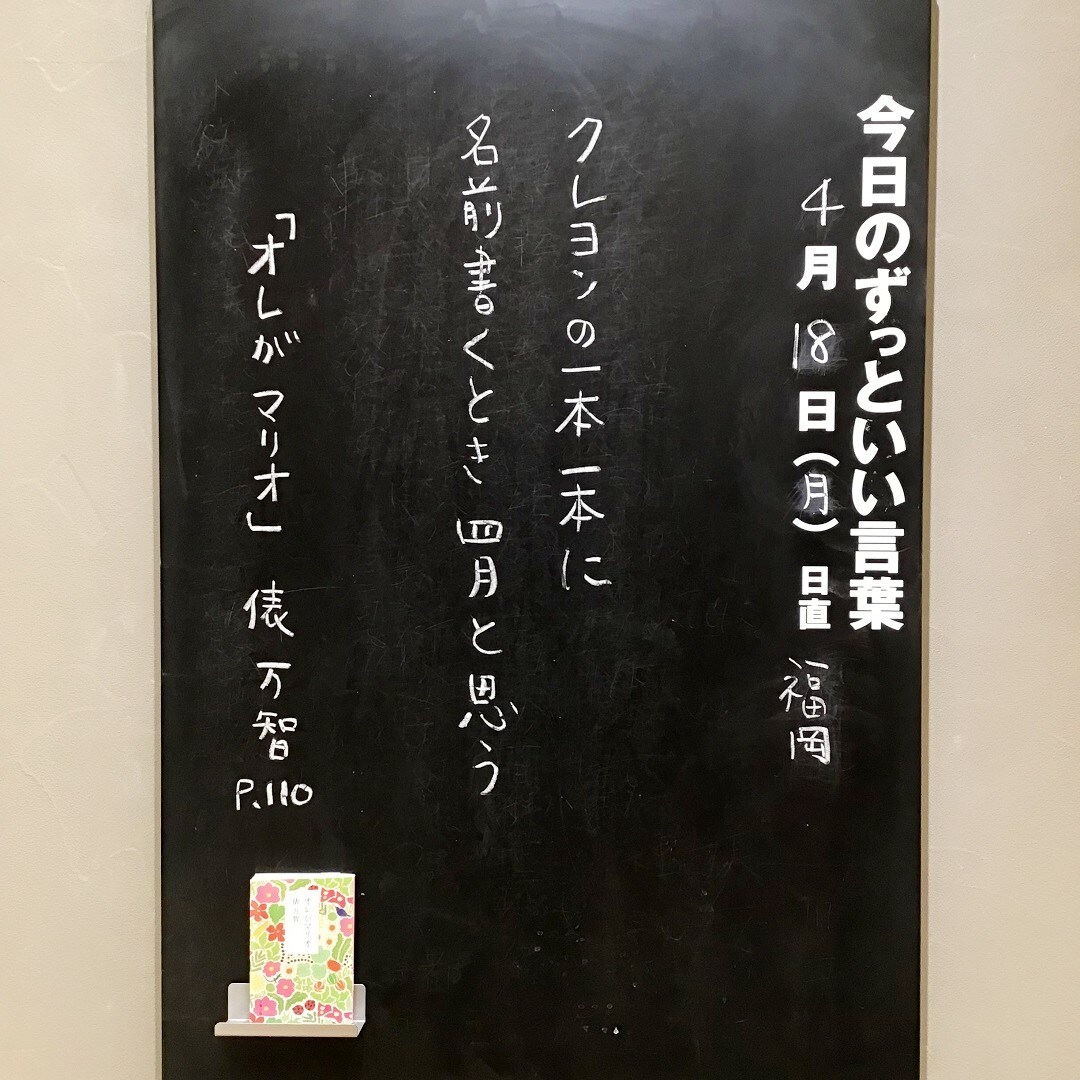 今日のずっといい言葉
4月18日(月) 日直 福岡
クレヨンの一本一本に
名前書くとき四月と思う
「オレがマリオ」 俵万智
P.110
オレがマリオ
俵万智